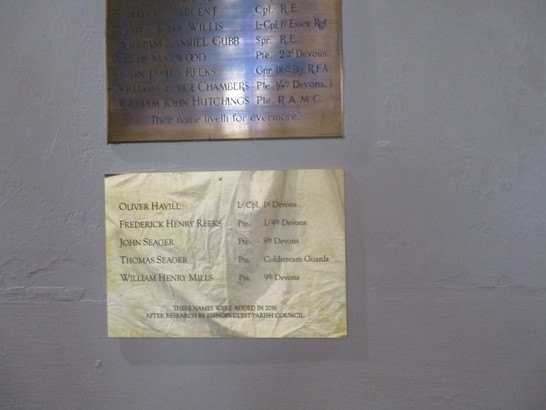 Cpl. R.E.
WILLIS L-Cpl. 1st Essex Rgt
WILLIAM SAMUEL GUBB Spr. R.E.
MARWOOD Pte. 2nd Devons.
JAMES REEKS Gnr. R.F.A.
WILLIAM GEORGE CHAMBERS Pte. 1/4th Devons.
WILLIAM JOHN HUTCHINGS Pte. R.A.M.C.
"Their name liveth for evermore."
OLIVER HAVILL L/Cpl. 1st Devons
FREDERICK HENRY REEKS Pte. 1/4th Devons
JOHN SEAGER Pte. 9th Devons
THOMAS SEAGER Pte. Coldstream Guards
WILLIAM HENRY MILLS Pte. 9th Devons
THESE NAMES WERE ADDED IN 2016
AFTER RESEARCH BY BISHOPS CLYST PARISH COUNCIL